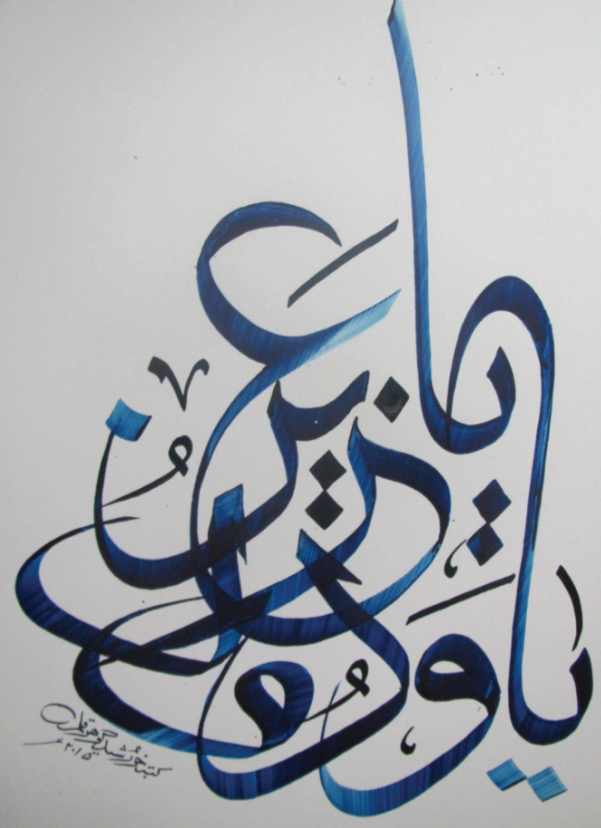 يا عزيز
يا ودود
كتبه خورشيد گوهر قلم
۲۰۱۵ء